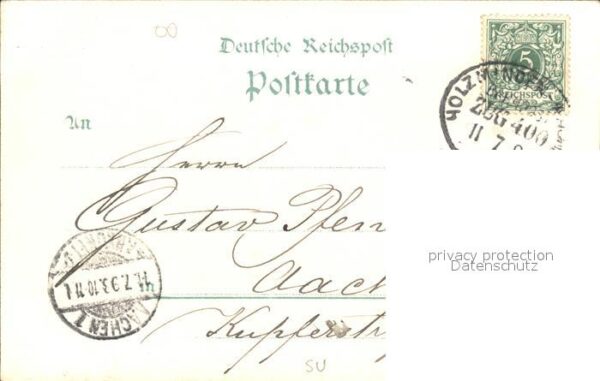 Deutsche Reichspost
Postkarte
5
REICHSPOST
HOLZMINDEN
ZUG 400
11 7
An
Herrn
Gustav Pfen
Aach
Kupferstr
AACHEN 1.
11.7.93.10-11
SU
privacy protection
Datenschutz